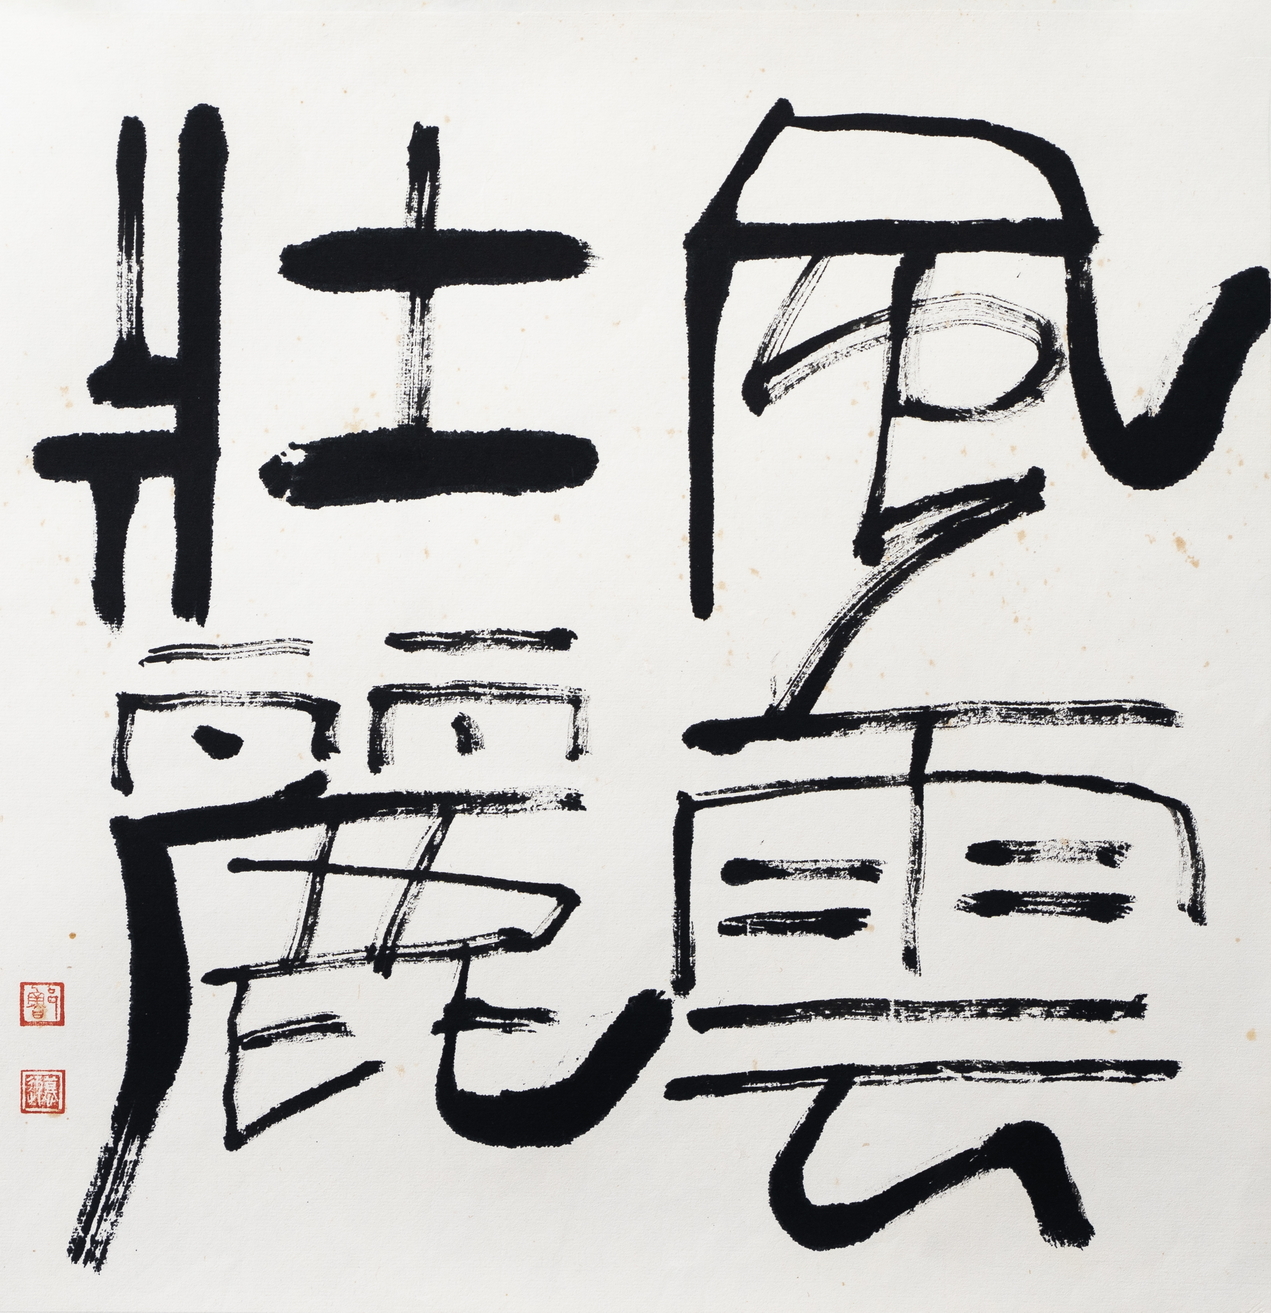 風雲
壯麗